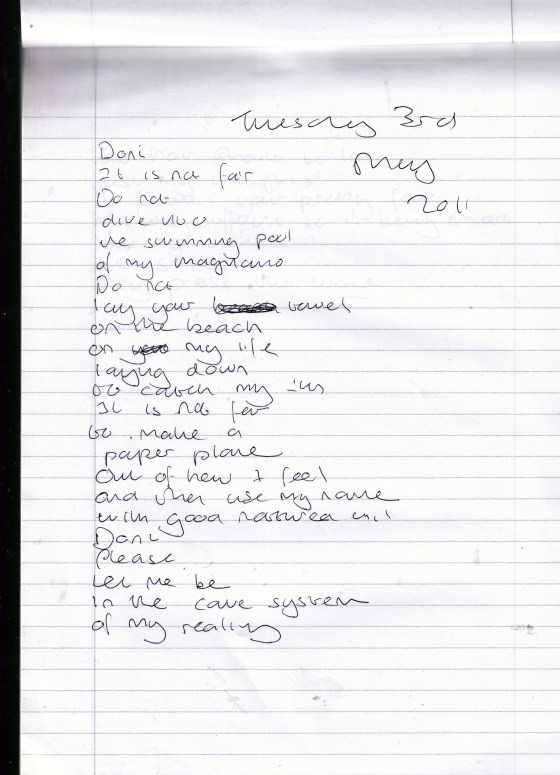 Tuesday 3rd
May
2011
Dont
It is not fair
Do not
dive into
the swimming pool
of my
Do not
lay your towel
on the beach
on my life
laying down
to catch my
It is not fair
to make a
paper plane
Out of how I feel
and then use my name
with good natured
Dont
Please
Let me be
In the cave system
of my reality